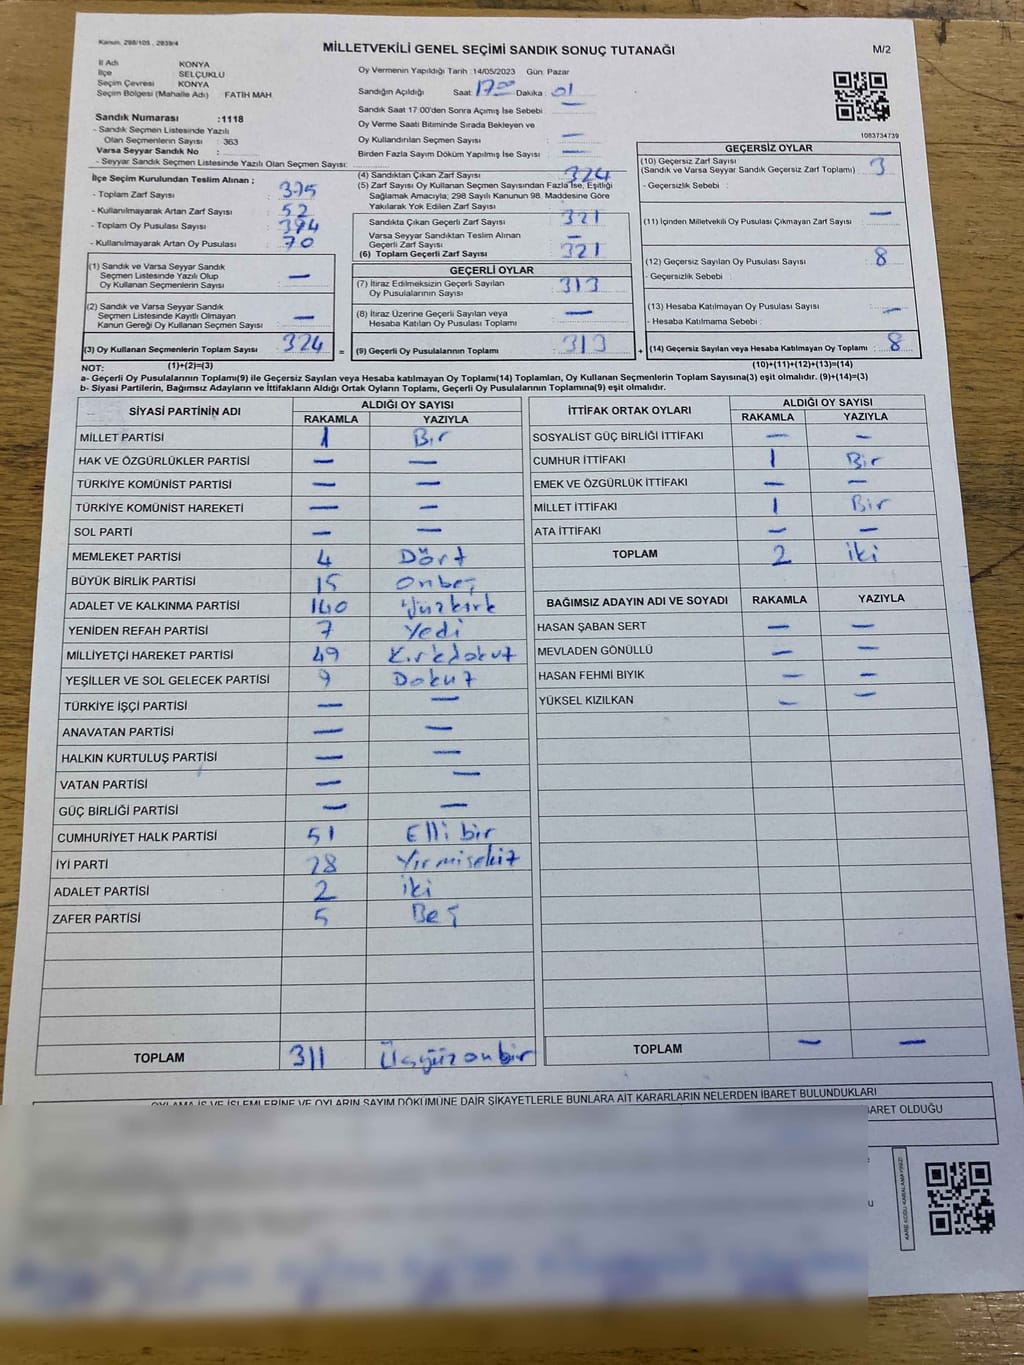 Kanun. 298/105 , 2839/4
MİLLETVEKİLİ GENEL SEÇİMİ SANDIK SONUÇ TUTANAĞI
M/2
İl Adı KONYA
İlçe SELÇUKLU
Seçim Çevresi KONYA
Seçim Bölgesi (Mahalle Adı) FATİH MAH.
Oy Vermenin Yapıldığı Tarih :14/05/2023 Gün: Pazar
Sandığın Açıldığı Saat: 17:00 Dakika : 01
Sandık Saat 17:00'den Sonra Açımış İse Sebebi : —
Oy Verme Saati Bitiminde Sırada Bekleyen ve
Oy Kullandırılan Seçmen Sayısı : —
Birden Fazla Sayım Döküm Yapılmış İse Sayısı : —
1083734739
Sandık Numarası :1118
- Sandık Seçmen Listesinde Yazılı
Olan Seçmenlerin Sayısı : 363
Varsa Seyyar Sandık No :
- Seyyar Sandık Seçmen Listesinde Yazılı Olan Seçmen Sayısı:
İlçe Seçim Kurulundan Teslim Alınan ;
- Toplam Zarf Sayısı : 375
- Kullanılmayarak Artan Zarf Sayısı : 52
- Toplam Oy Pusulası Sayısı : 394
- Kullanılmayarak Artan Oy Pusulası : 70
(1) Sandık ve Varsa Seyyar Sandık
Seçmen Listesinde Yazılı Olup
Oy Kullanan Seçmenlerin Sayısı : —
(2) Sandık ve Varsa Seyyar Sandık
Seçmen Listesinde Kayıtlı Olmayan
Kanun Gereği Oy Kullanan Seçmen Sayısı : —
(3) Oy Kullanan Seçmenlerin Toplam Sayısı : 324
(4) Sandıktan Çıkan Zarf Sayısı : 324
(5) Zarf Sayısı Oy Kullanan Seçmen Sayısından Fazla İse, Eşitliği
Sağlamak Amacıyla; 298 Sayılı Kanunun 98. Maddesine Göre
Yakılarak Yok Edilen Zarf Sayısı :
Sandıkta Çıkan Geçerli Zarf Sayısı : 321
Varsa Seyyar Sandıktan Teslim Alınan
Geçerli Zarf Sayısı : —
(6) Toplam Geçerli Zarf Sayısı : 321
GEÇERLİ OYLAR
(7) İtiraz Edilmeksizin Geçerli Sayılan
Oy Pusulalarının Sayısı : 313
(8) İtiraz Üzerine Geçerli Sayılan veya
Hesaba Katılan Oy Pusulası Toplamı : —
= (9) Geçerli Oy Pusulalarının Toplamı : 313
GEÇERSİZ OYLAR
(10) Geçersiz Zarf Sayısı : 3
(Sandık ve Varsa Seyyar Sandık Geçersiz Zarf Toplamı)
- Geçersizlik Sebebi :
(11) İçinden Milletvekili Oy Pusulası Çıkmayan Zarf Sayısı : —
(12) Geçersiz Sayılan Oy Pusulası Sayısı : 8
- Geçersizlik Sebebi :
(13) Hesaba Katılmayan Oy Pusulası Sayısı : —
- Hesaba Katılmama Sebebi :
+ (14) Geçersiz Sayılan veya Hesaba Katılmayan Oy Toplamı : 8
NOT: (1)+(2)=(3) (10)+(11)+(12)+(13)=(14)
a- Geçerli Oy Pusulalarının Toplamı(9) ile Geçersiz Sayılan veya Hesaba katılmayan Oy Toplamı(14) Toplamları, Oy Kullanan Seçmenlerin Toplam Sayısına(3) eşit olmalıdır. (9)+(14)=(3)
b- Siyasi Partilerin, Bağımsız Adayların ve İttifakların Aldığı Ortak Oyların Toplamı, Geçerli Oy Pusulalarının Toplamına(9) eşit olmalıdır.
SİYASİ PARTİNİN ADI ALDIĞI OY SAYISI
RAKAMLA YAZIYLA
MİLLET PARTİSİ 1 Bir
HAK VE ÖZGÜRLÜKLER PARTİSİ — —
TÜRKİYE KOMÜNİST PARTİSİ — —
TÜRKİYE KOMÜNİST HAREKETİ — —
SOL PARTİ — —
MEMLEKET PARTİSİ 4 Dört
BÜYÜK BİRLİK PARTİSİ 15 onbeş
ADALET VE KALKINMA PARTİSİ 140 Yüzkırk
YENİDEN REFAH PARTİSİ 7 Yedi
MİLLİYETÇİ HAREKET PARTİSİ 49 Kırkdokuz
YEŞİLLER VE SOL GELECEK PARTİSİ 9 Dokuz
TÜRKİYE İŞÇİ PARTİSİ — —
ANAVATAN PARTİSİ — —
HALKIN KURTULUŞ PARTİSİ — —
VATAN PARTİSİ — —
GÜÇ BİRLİĞİ PARTİSİ — —
CUMHURİYET HALK PARTİSİ 51 Elli bir
İYİ PARTİ 28 Yirmisekiz
ADALET PARTİSİ 2 iki
ZAFER PARTİSİ 5 Beş
TOPLAM 311 Üçyüzonbir
İTTİFAK ORTAK OYLARI ALDIĞI OY SAYISI
RAKAMLA YAZIYLA
SOSYALİST GÜÇ BİRLİĞİ İTTİFAKI — —
CUMHUR İTTİFAKI 1 Bir
EMEK VE ÖZGÜRLÜK İTTİFAKI — —
MİLLET İTTİFAKI 1 Bir
ATA İTTİFAKI — —
TOPLAM 2 iki
BAĞIMSIZ ADAYIN ADI VE SOYADI RAKAMLA YAZIYLA
HASAN ŞABAN SERT — —
MEVLADEN GÖNÜLLÜ — —
HASAN FEHMİ BIYIK — —
YÜKSEL KIZILKAN — —
TOPLAM — —
OYLAMA İŞ VE İŞLEMLERİNE VE OYLARIN SAYIM DÖKÜMÜNE DAİR ŞİKAYETLERLE BUNLARA AİT KARARLARIN NELERDEN İBARET BULUNDUKLARI
BARET OLDUĞU